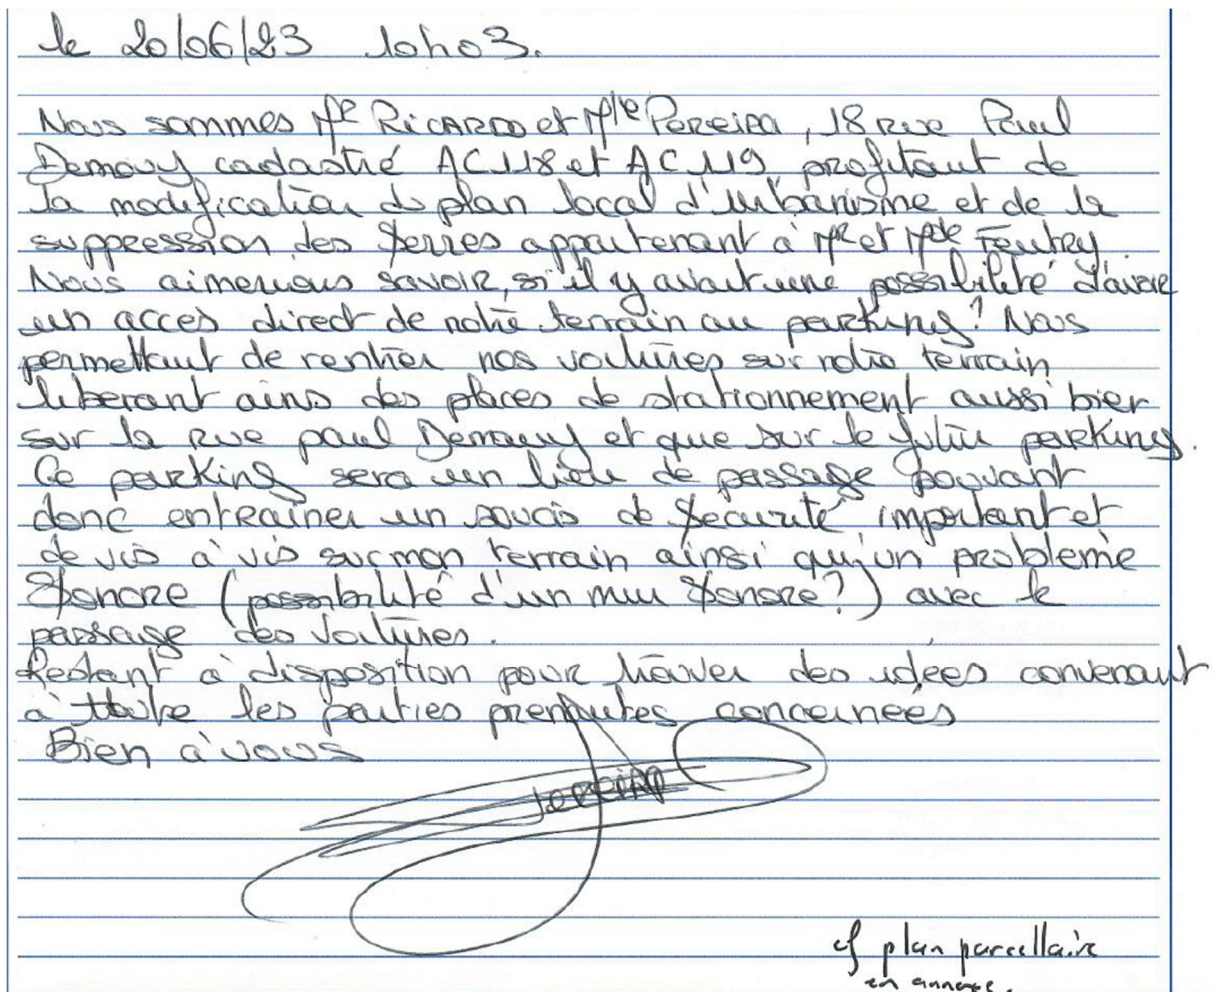 le 20/06/23 10h03.
Nous sommes Mr RICARDO et Mlle PEREIRA, 18 rue Paul
Demouy cadastré AC118 et AC119, profitant de
la modification du plan local d'urbanisme et de la
suppression des serres appartenant à Mr et Mde Feutry.
Nous aimerions savoir, si il y avait une possibilité d'avoir
un acces direct de notre terrain au parking? Nous
permettant de rentrer nos voitures sur notre terrain
liberant ainsi des places de stationnement aussi bien
sur la rue paul Demouy et que sur le futur parking.
Ce parking sera un lieu de passage pouvant
donc entrainer un soucis de sécurité important et
de vis à vis sur mon terrain ainsi qu'un problème
sonore (possibilité d'un mur sonore?) avec le
passage des voitures.
Restant à disposition pour trouver des idées convenant
à toute les parties prenantes concernées
Bien à vous
Pereira
cf plan parcellaire
en annexe.